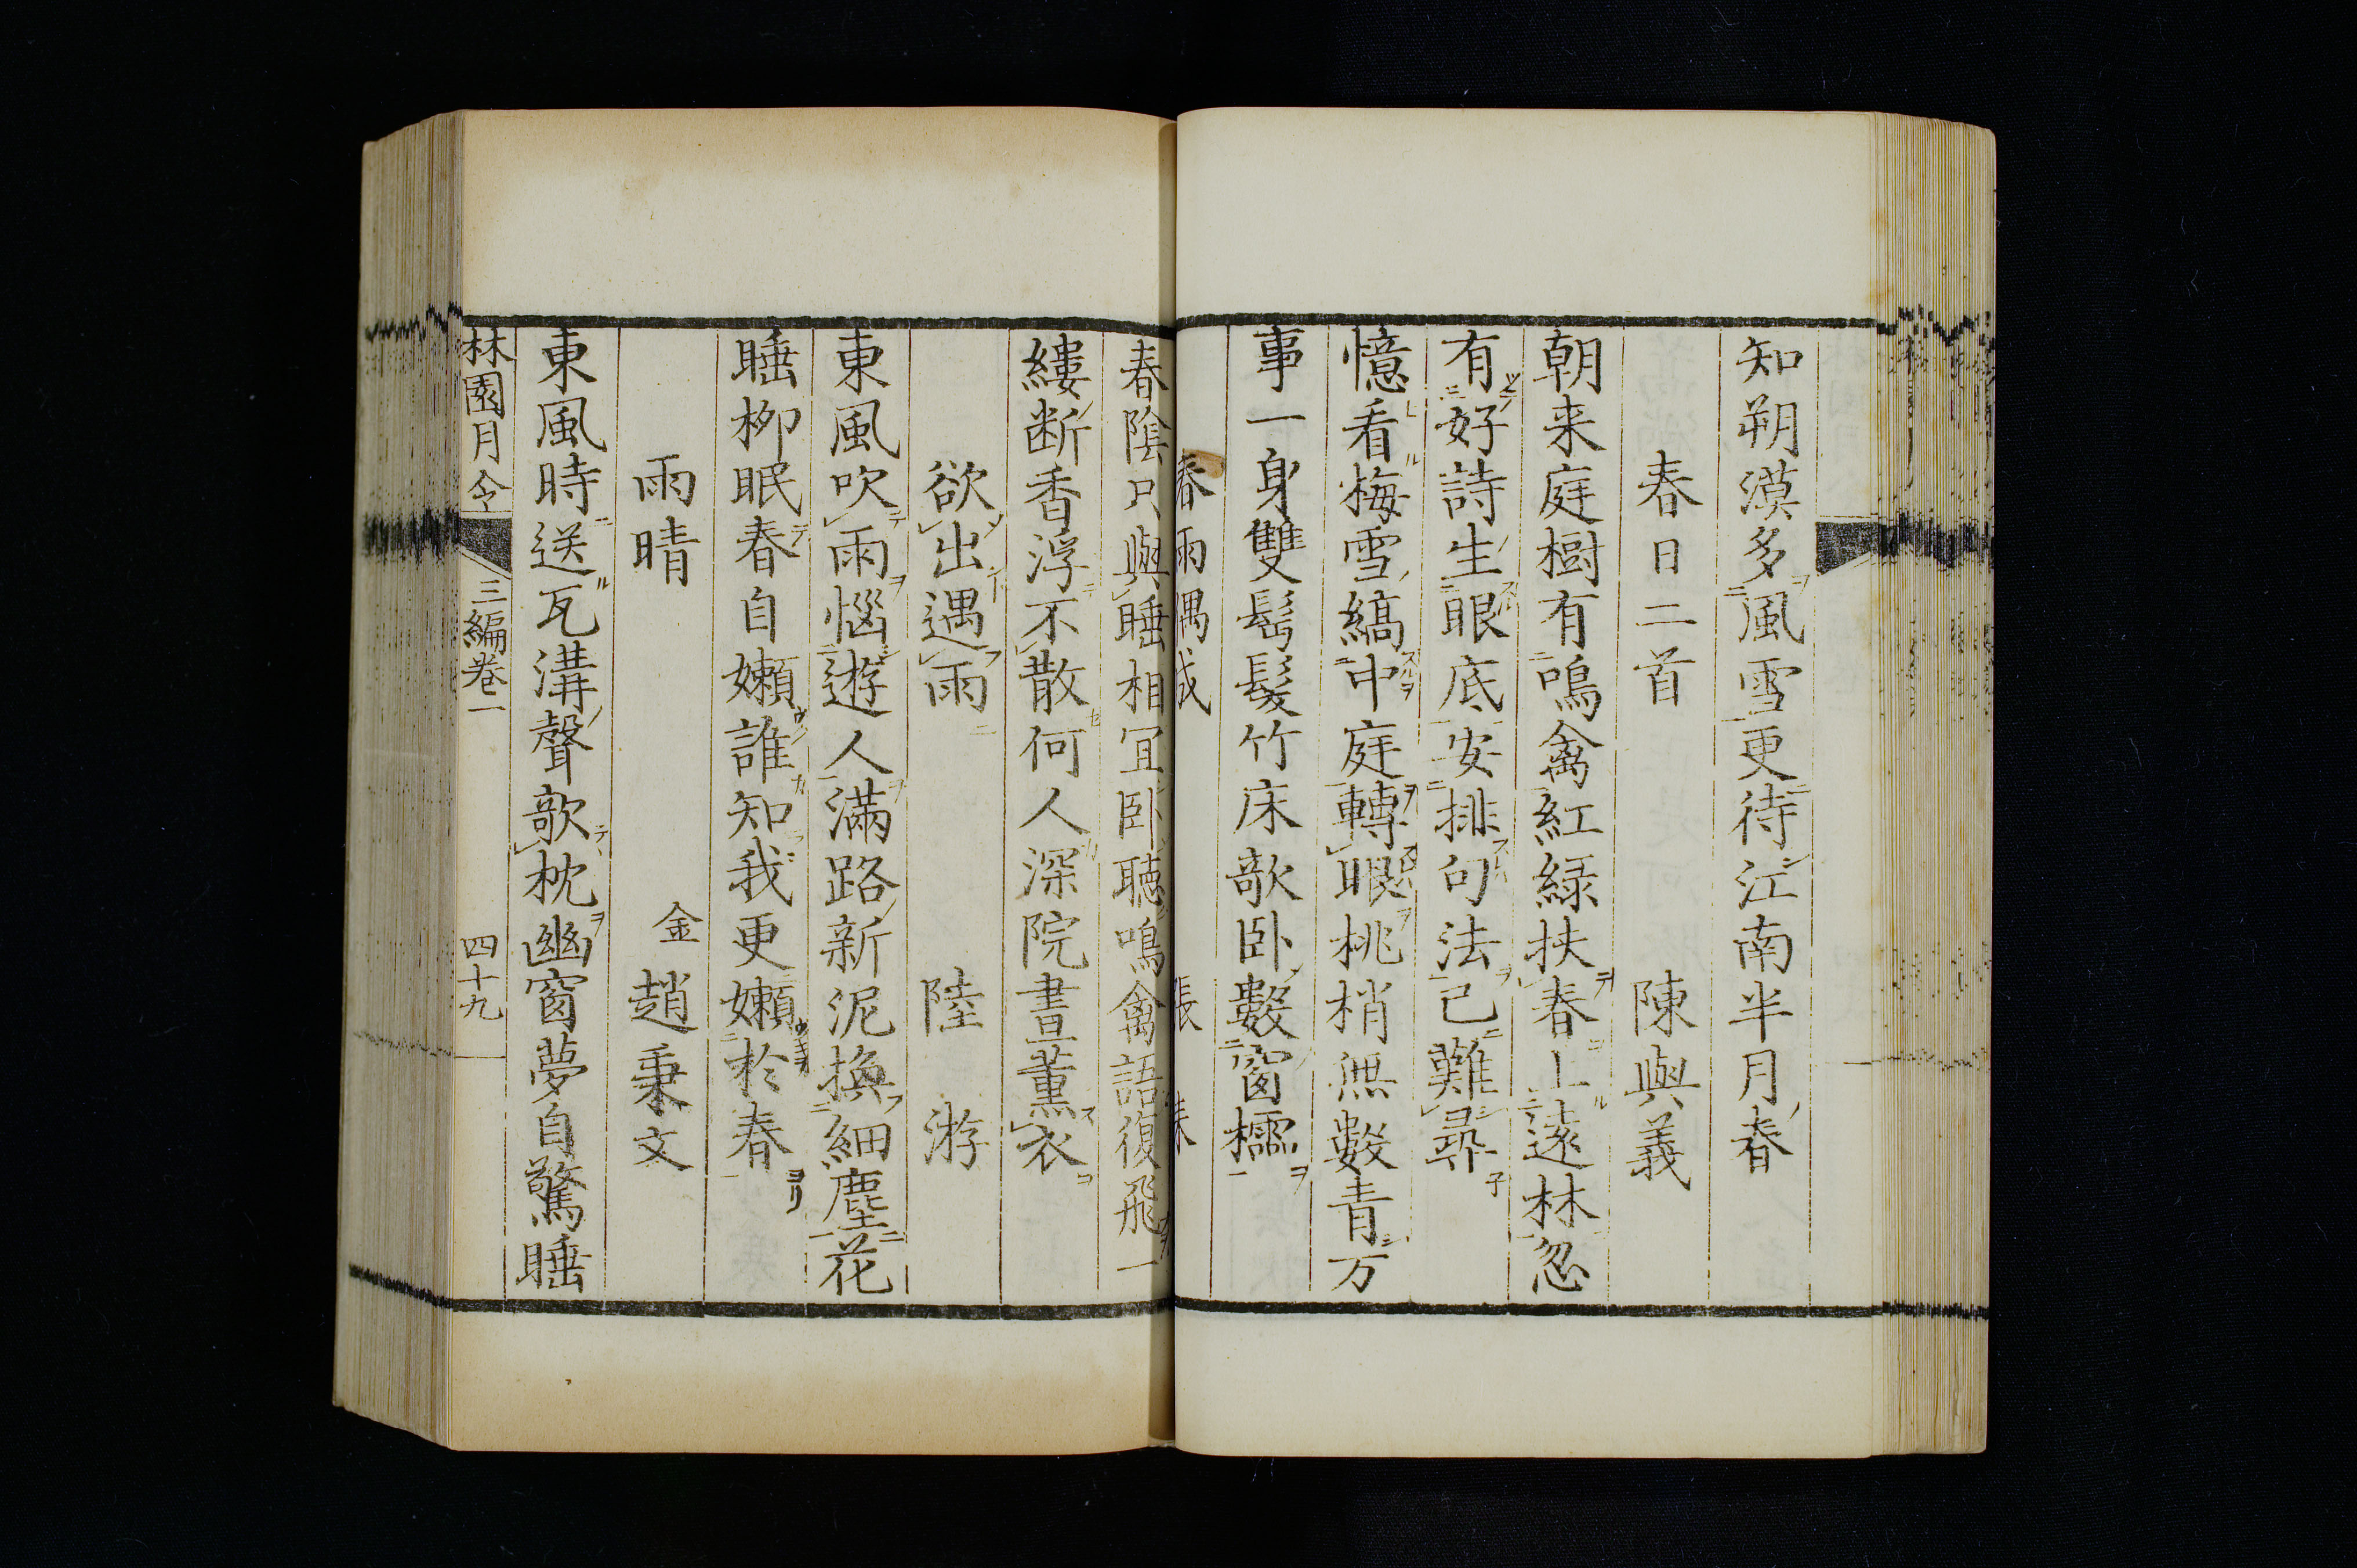 知朔漠多風雪更待江南半月春
春日二首 陳與義
朝来庭樹有鳴禽紅綠扶春上遠林忽
有好詩生眼底安排句法已難尋
憶看梅雪縞中庭轉眼桃梢無數青万
事一身雙髩髮竹床欹卧數窗櫺
春雨偶成 張耒
春陰只與睡相宜卧聽鳴禽語復飛一
縷断香浮不散何人深院晝薰衣
欲出遇雨 陸游
東風吹雨惱遊人滿路新泥換細塵花
睡柳眠春自嬾誰知我更嬾於春
雨晴 金 趙秉文
東風時送瓦溝聲欹枕幽窗夢自驚睡
林園月令 三編卷一 四十九